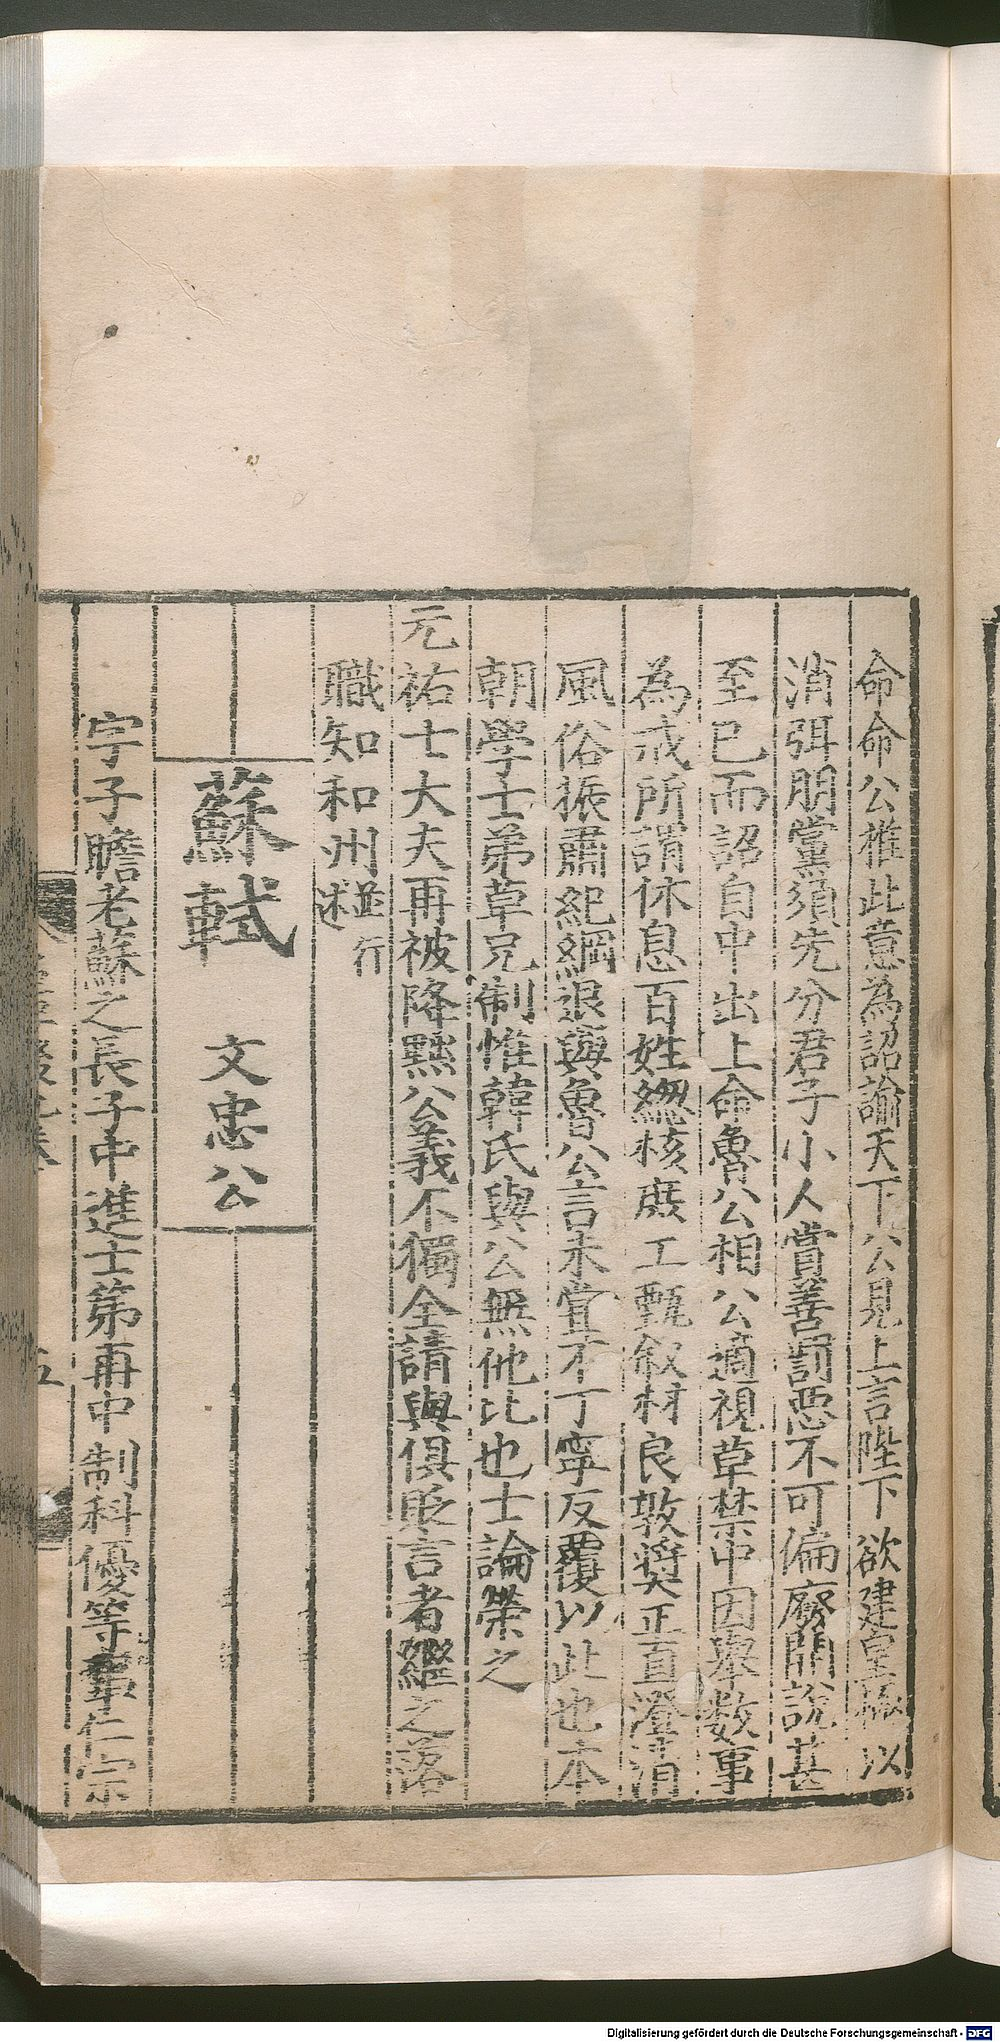 命命公推此意為詔諭天下公見上言陛下欲建皇極以
消弭朋黨須先分君子小人賞善罰惡不可偏廢開說甚
至已而詔自中出上命魯公相公適視草禁中因舉数事
為戒所謂休息百姓緫核庶工甄叙材良敦奬正直澄清
風俗振肅紀綱退與魯公言未嘗不丁寧反覆以此也本
朝學士弟草兄制惟韓氏與公無他比也士論榮之
元祐士大夫再被降黜公義不獨全請與俱貶言者繼之落
職知和州 並行述
蘇軾 文忠公
字子瞻老蘇之長子中進士第再中制科優等 仁宗
五
Digitalisierung gefördert durch die Deutsche Forschungsgemeinschaft - DFG